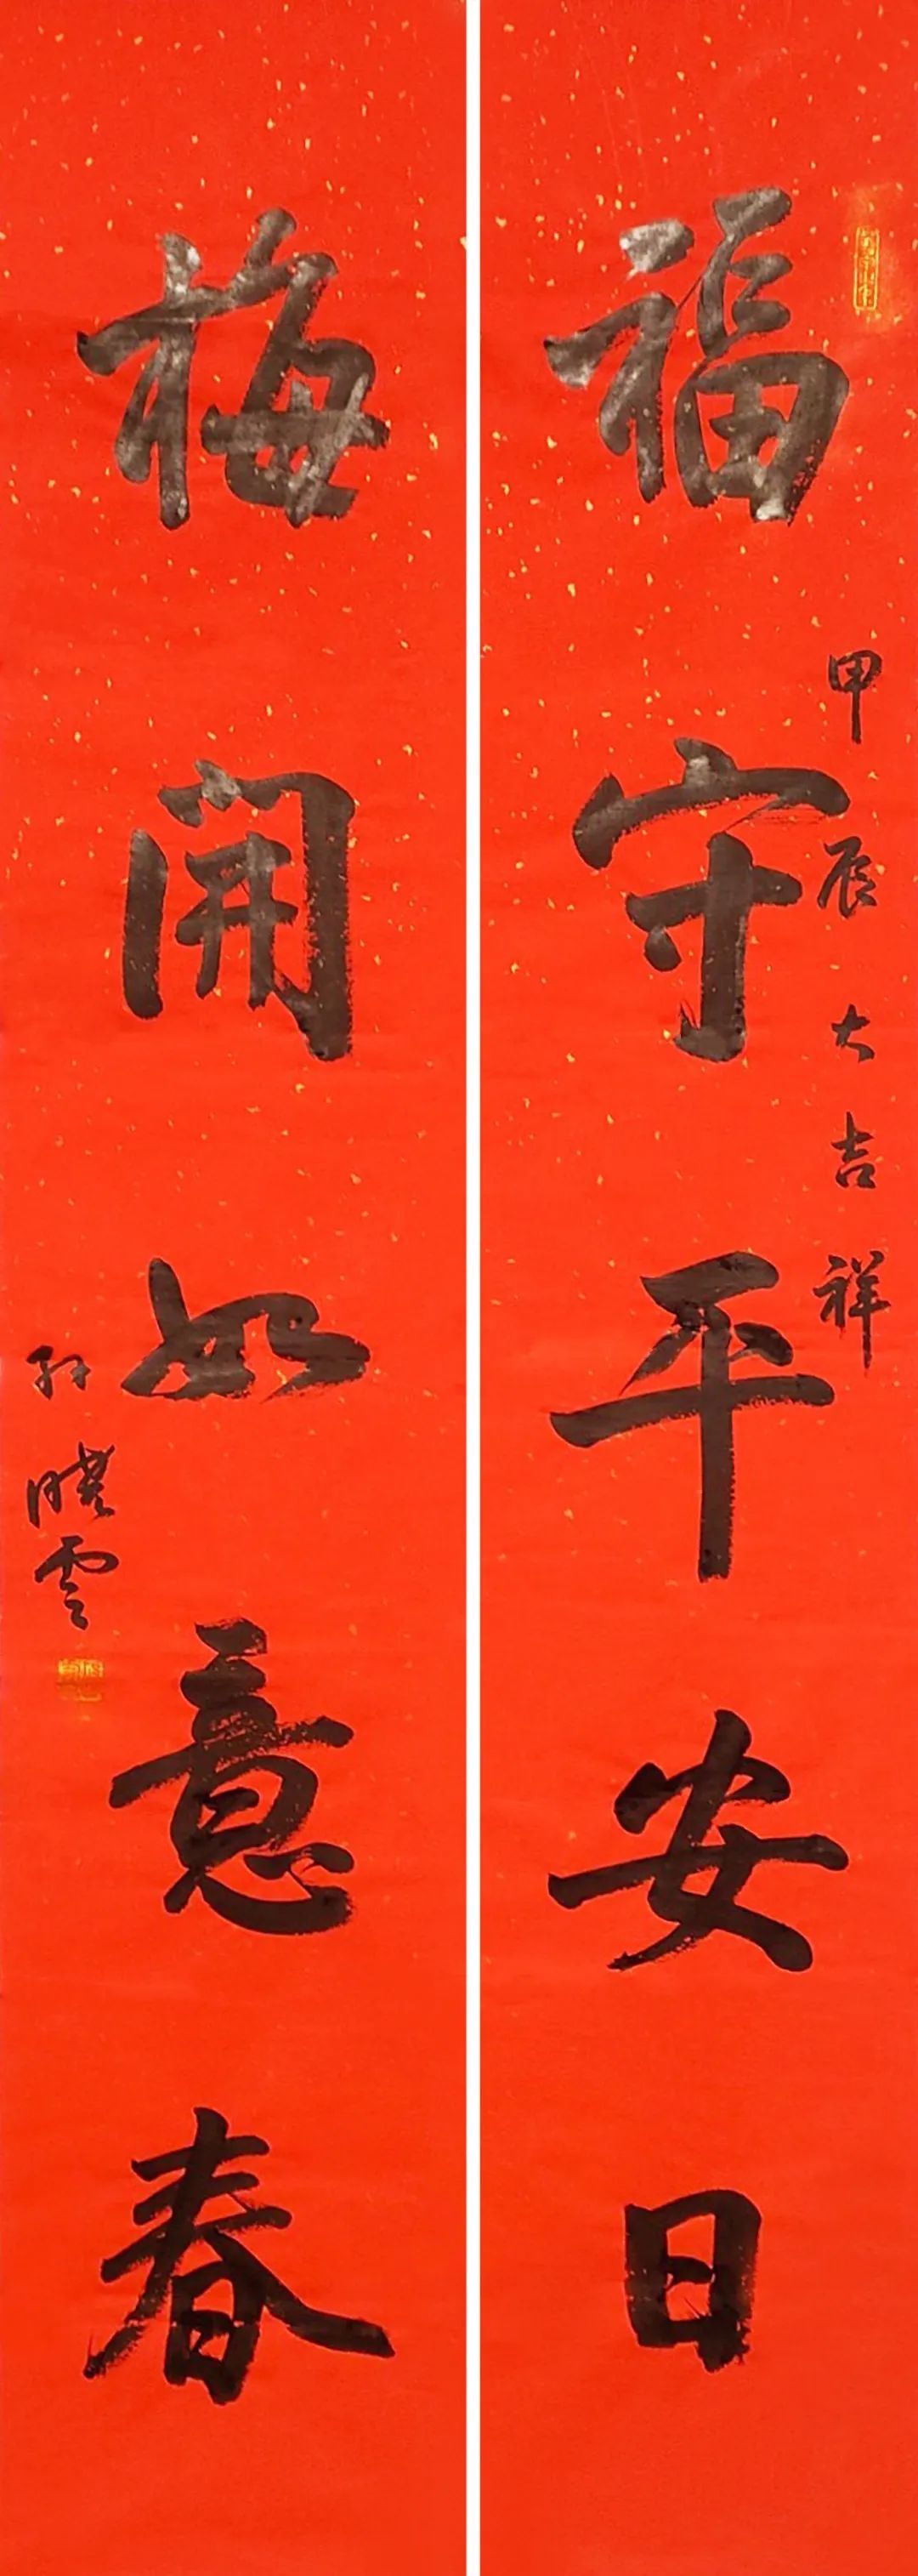 福守平安日
甲辰大吉祥
梅開如意春
孫曉雲